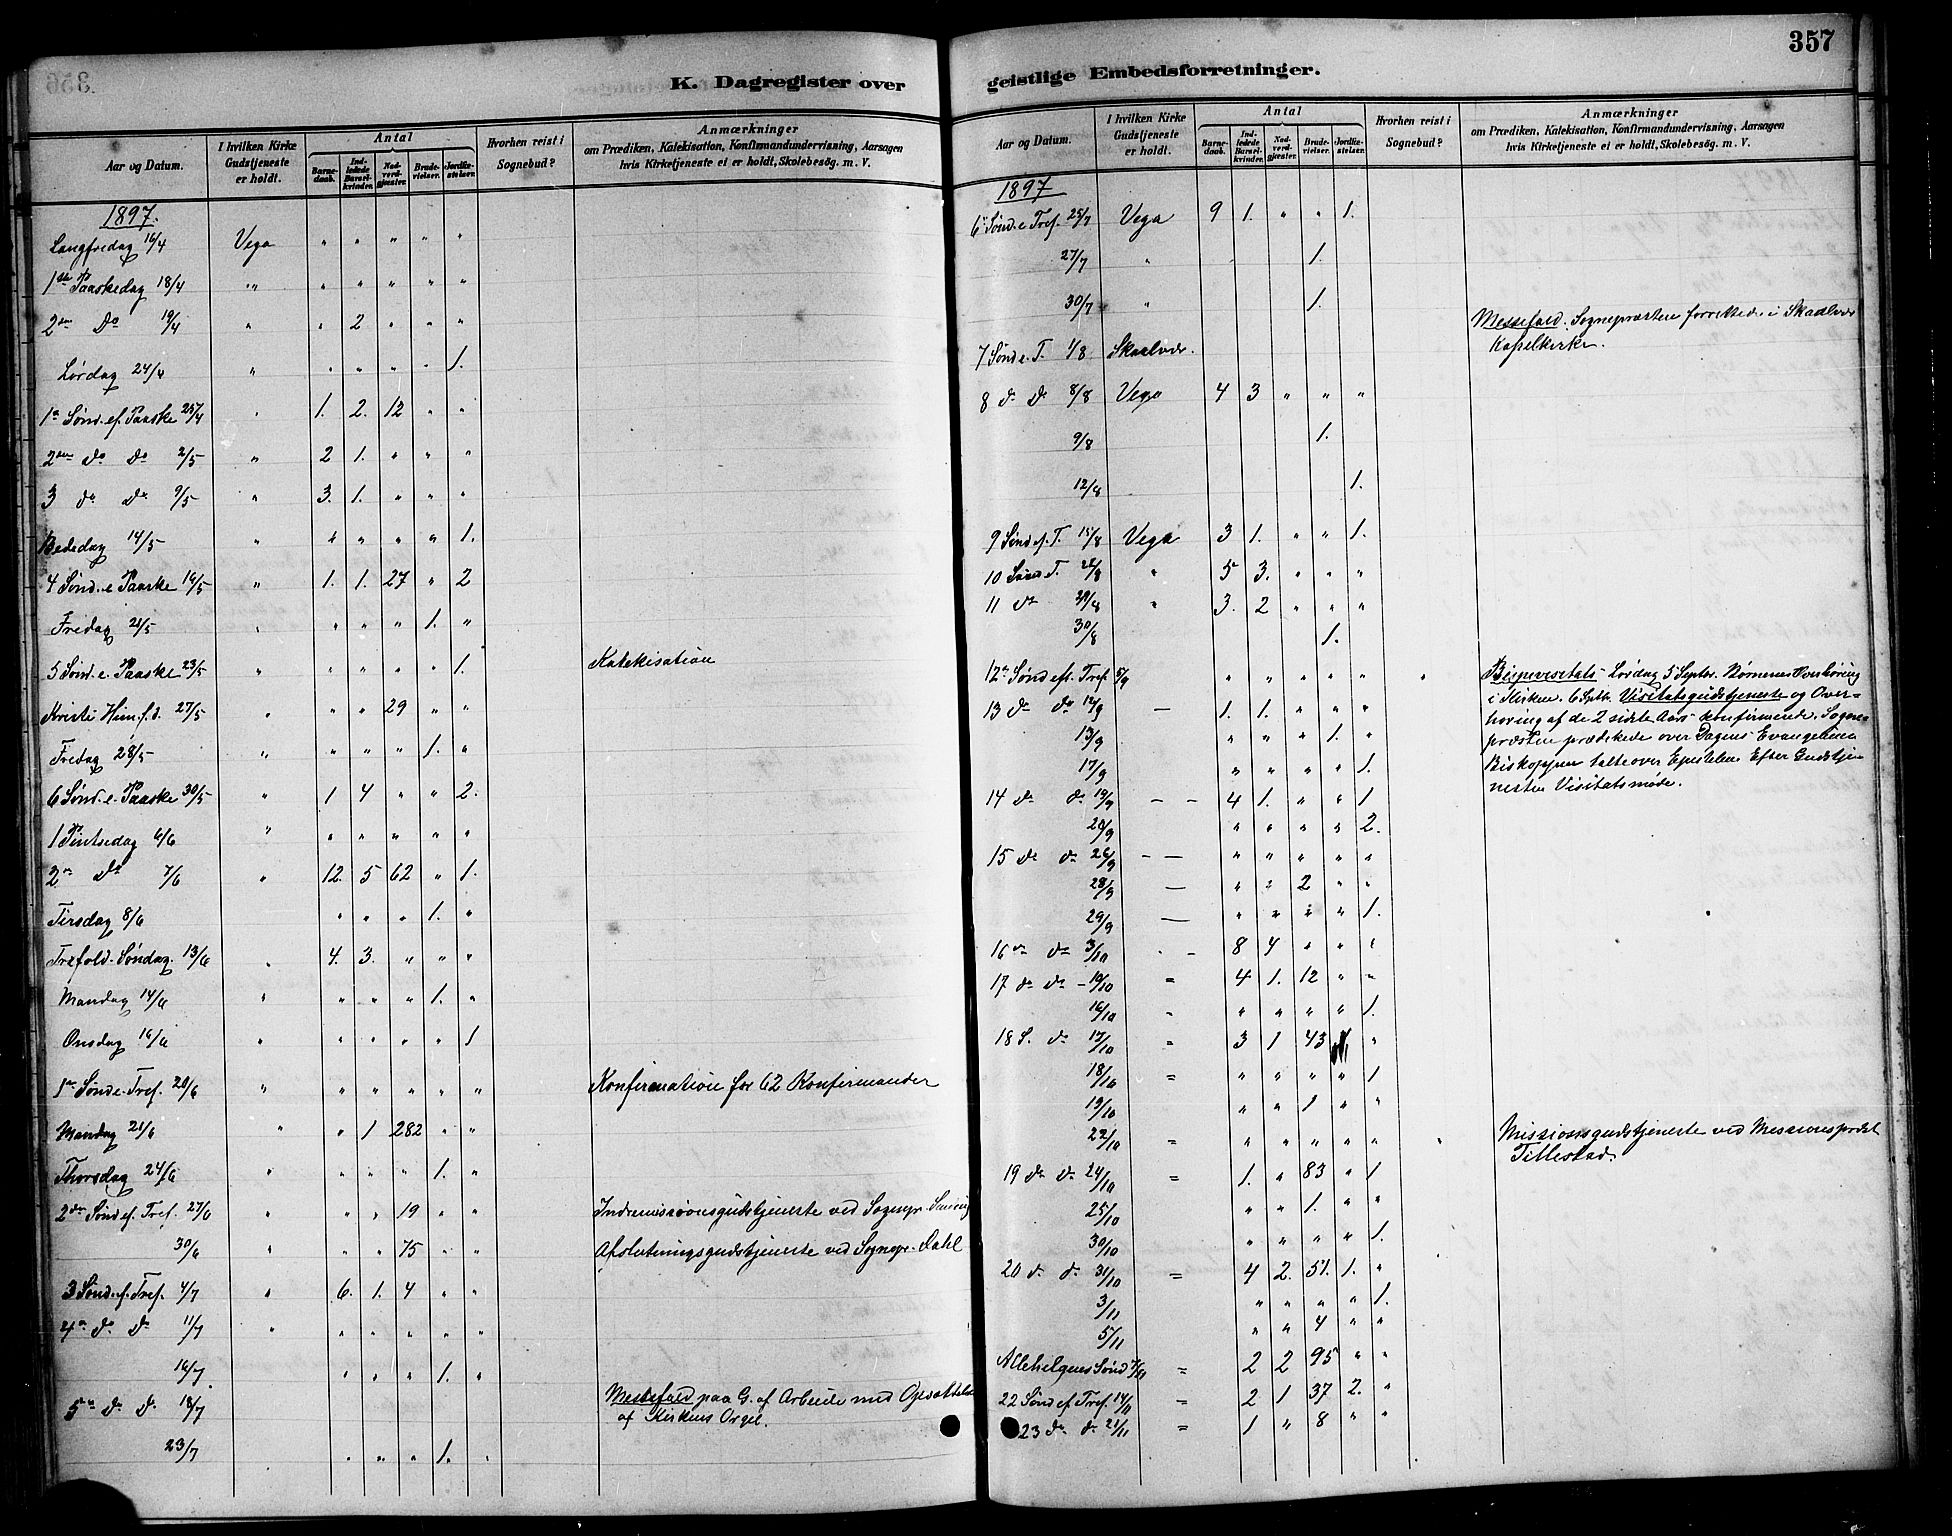 357
K. Dagregister over
geistlige Embedsforretninger.
Aar og Datum.
I hvilken Kirke Gudstjeneste er holdt.
Antal
Barnedaab.
Indledede Barselkvinder.
Nadverdgjester.
Brudevielser.
Jordfæstelser.
Hvorhen reist i Sognebud?
Anmærkninger
om Prædiken, Katekisation, Konfirmandundervisning, Aarsagen
hvis Kirketjeneste ei er holdt, Skolebesøg. m. V.
1897.
Langfredag 16/4 Vega " " " " "
1ste Paaskedag 18/4 " " " " " "
2den Do 19/4 " " 2 " " "
Lørdag 24/4 " " " " " 1.
1ste Sønd. ef. Paaske 25/4 " 1. 2. 12 " "
2den do do 2/5 " 2 1. " " "
3 do do 9/5 " 3. 1. " " "
Bededag 14/5 " " " " " 1.
4 Sønd. e Paaske 16/5 " 1. 1. 27 " 2
Fredag 21/5 " " " " 1. "
5 Sønd. e. Paaske 23/5 " " " " " 1. Katekisation
Kristi Him.f.d. 27/5 " " " 29 " "
Fredag 28/5 " " " " 1. "
6 Sønd. e. Paaske 30/5 " 1 4 " " 2.
1 Pintsedag 6/6 " " " " " "
2den Do 7/6 " 12. 5 62 " 1.
Tirsdag 8/6 " " " 1. "
Trefold. Søndag. 13/6 " 4. 3. " " "
Mandag 14/6 " " " " 1. "
Onsdag 16/6 " " " " " 1
1ste Sønd e. Tref. 20/6 " " " " " " Konfirmation for 62 Konfirmander
Mandag 21/6 " " 1 282 " "
Thorsdag 24/6 " " " " 1. "
2den Sønd ef. Tref. 27/6 " " " 19 " " Indremissionsgudstjeneste ved Sognepr.
30/6 " " " 75 " " Afslutningsgudstjeneste ved Sognepr. Dahl
3 Sønd. ef. Tref. 4/7 " 6. 1. 4 " "
4de do do 11/7 " " " " " "
16/7. " " " 1. "
5te do do 18/7 Messefald paa G. af Arbeide med Opsættelse
af Kirkens Orgel.
23/7 " " " 1. "
Aar og Datum.
I hvilken Kirke Gudstjeneste er holdt.
Antal
Barnedaab.
Indledede Barselkvinder.
Nadverdgjester.
Brudevielser.
Jordfæstelser.
Hvorhen reist i Sognebud?
Anmærkninger
om Prædiken, Katekisation, Konfirmandundervisning, Aarsagen
hvis Kirketjeneste ei er holdt, Skolebesøg. m. V.
1897
6te Sønd. e Tref. 25/7 Vega 9 1. " " 1.
27/7 " 1.
30/7 " 1.
Messefald. Sognepresten forrettede i Skaalvær
Kapelkirke.
7 Sønd e. T. 1/8 Skaalvær.
8 do do 8/8 Vega 4 3 " " "
9/8 1.
12/8 1.
9 Sønd ef. T. 15/8 Vega 3 1. " " 1.
10 Sønd T. 22/8 " 5 3. " " "
11 do 29/8 " 3. 2 " " "
30/8 1.
12te Sønd eft. Tref. 5/9 " " " " " "
Bispevisitats Lørdag 5 Septbr. Børnenes Overhøring
i Kirken. 6 Sptbr. Visitatsgudstjeneste og Over-
høring af de 2 sidste Aars konfirmerede. Sogne-
præsten prædikede over Dagens Evangelium
Biskoppen talte over Epistelen. Efter Gudstje-
nesten Visitatsmøde.
13 do do 12/9 — 1. 1. " " "
13/9 " " " 1. "
17/9 " " " " 1.
14 do do 19/9 — — 4 1. " " 1
20/9 " " " " 2.
15 do do 26/9 — — " " " " "
28/9 — " " 2 " "
29/9 — " " " " 1.
16de do 3/10 " 8 4 " " "
17 do do 10/10 = 4 1. 12 " "
16/10 " " " " " 1.
18 S. do 17/10 = 3 1 43 "
18/10 = " " " " 1
19/10 " " 1 " "
22/10 = " " " " " " Missionsgudstjeneste ved Missionsprest
19 do do 24/10 = 1. " 83 " 1
25/10 " " 1. " "
30/10 " " " " 1.
20 do do 31/10 = 4 2. 51. 1. "
3/11 " " " " 1.
5/11 " " 4 " "
Allehelgens Sønd 7/11 = 2 2 95 " "
22 Sønd ef Tref. 14/11 = 2 1 37 2. "
23 do do 21/11 = 1 " 8 " "